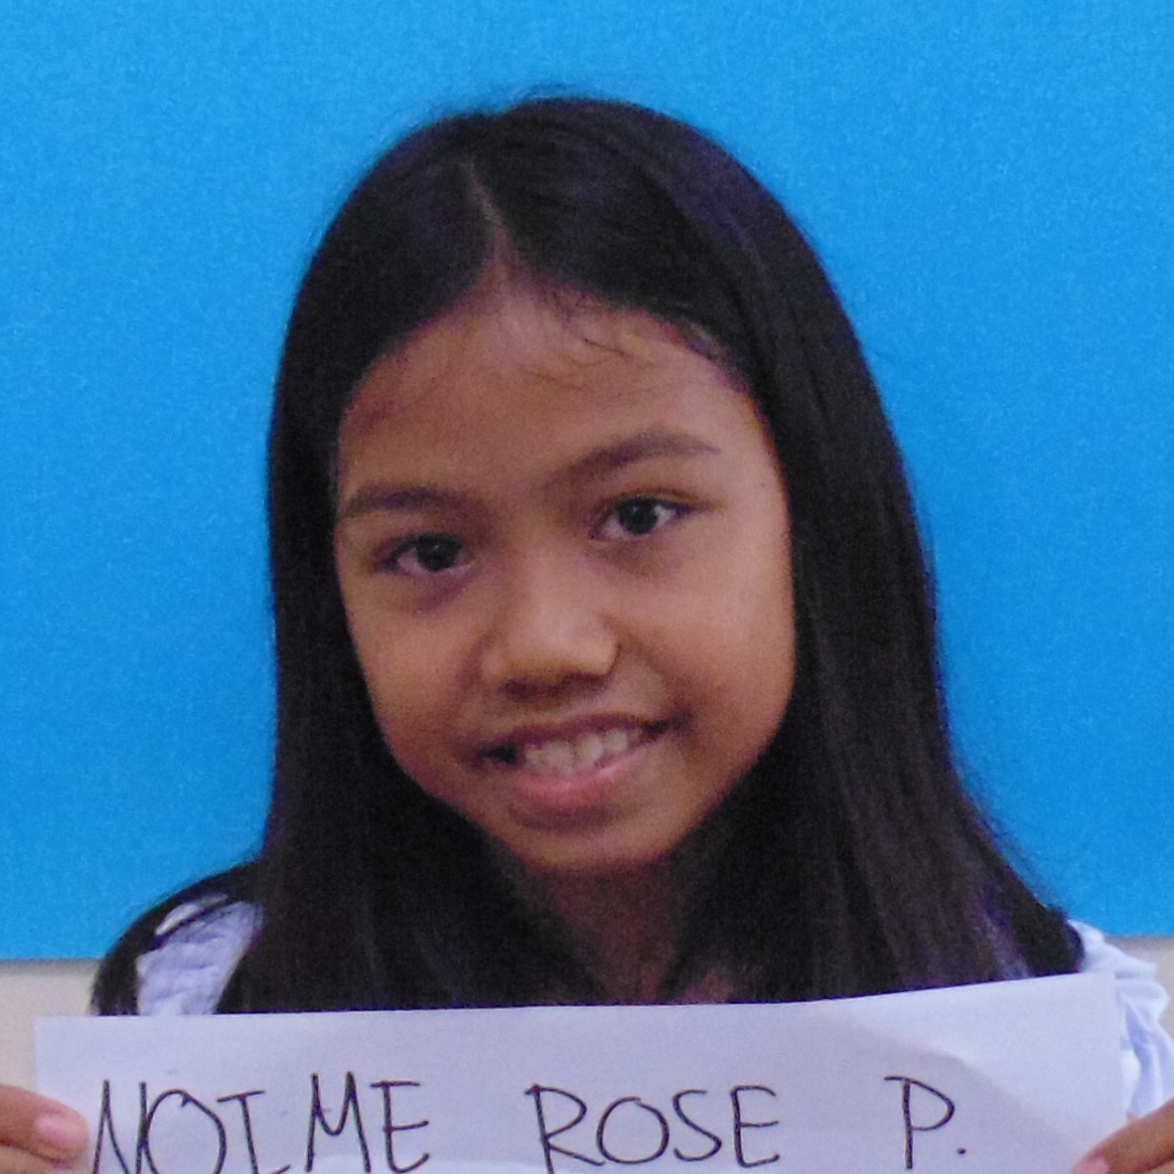 NOIME ROSE P.